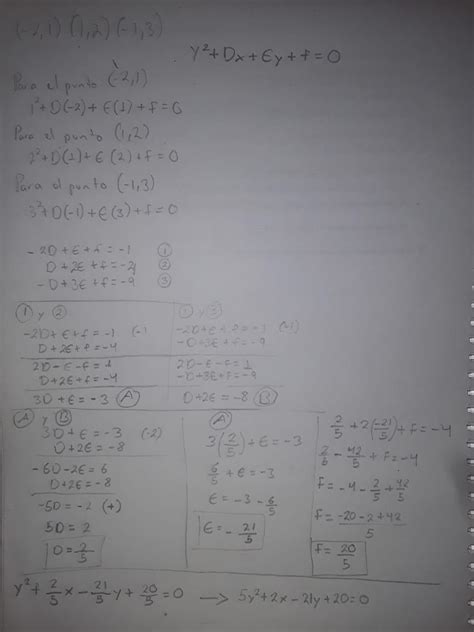 (-2,1) (1,2) (-1,3)
y²+Dx+Ey+f=0
Para el punto (-2,1)
1²+D(-2)+E(1)+f=0
Para el punto (1,2)
2²+D(1)+E(2)+f=0
Para el punto (-1,3)
3²+D(-1)+E(3)+f=0
-2D+E+f=-1 ①
D+2E+f=-4 ②
-D+3E+f=-9 ③
① y ②
-2D+E+f=-1 (-1)
D+2E+f=-4
2D-E-f=1
D+2E+f=-4
3D+E=-3 Ⓐ
① y ③
-2D+E+f=-1 (-1)
-D+3E+f=-9
2D-E-f=1
-D+3E+f=-9
D+2E=-8 Ⓑ
Ⓐ y Ⓑ
3D+E=-3 (-2)
D+2E=-8
-6D-2E=6
D+2E=-8
-5D=-2 (+)
5D=2
D=2/5
Ⓐ
3(2/5)+E=-3
6/5+E=-3
E=-3-6/5
E=-21/5
2/5+2(-21/5)+f=-4
2/5-42/5+f=-4
f=-4-2/5+42/5
f=-20-2+42/5
f=20/5
y²+2/5x-21/5y+20/5=0 → 5y²+2x-21y+20=0